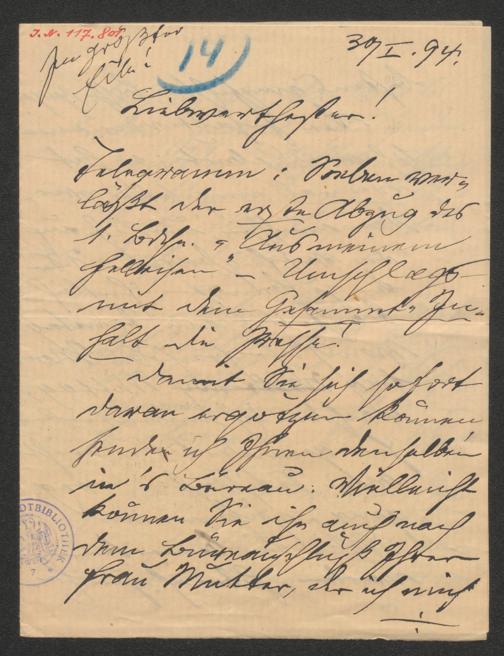 J.N. 117.801
In größter
Eile!
14
30/I. 94.
Liebwerthester!
Telegramm: Soeben ver-
läßt der erste Abzug des
1. Bdch. "Aus meinem
Felleisen" – Umschlags
mit dem Gesammt-In-
halt die Presse!
Damit Sie sich sofort
daran ergötzen können
sende ich Ihnen denselben
in's Bureau. Vielleicht
können Sie ihn auch nach
dem Bureauschluß Ihrer
Frau Mutter, der ich mich